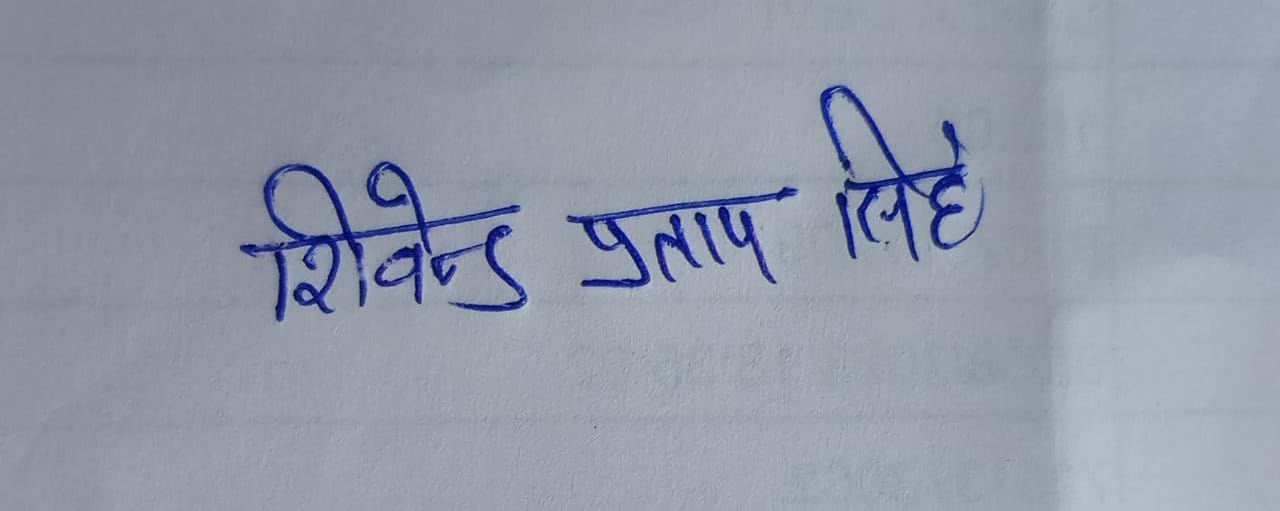 शिवेन्द्र प्रताप सिहं